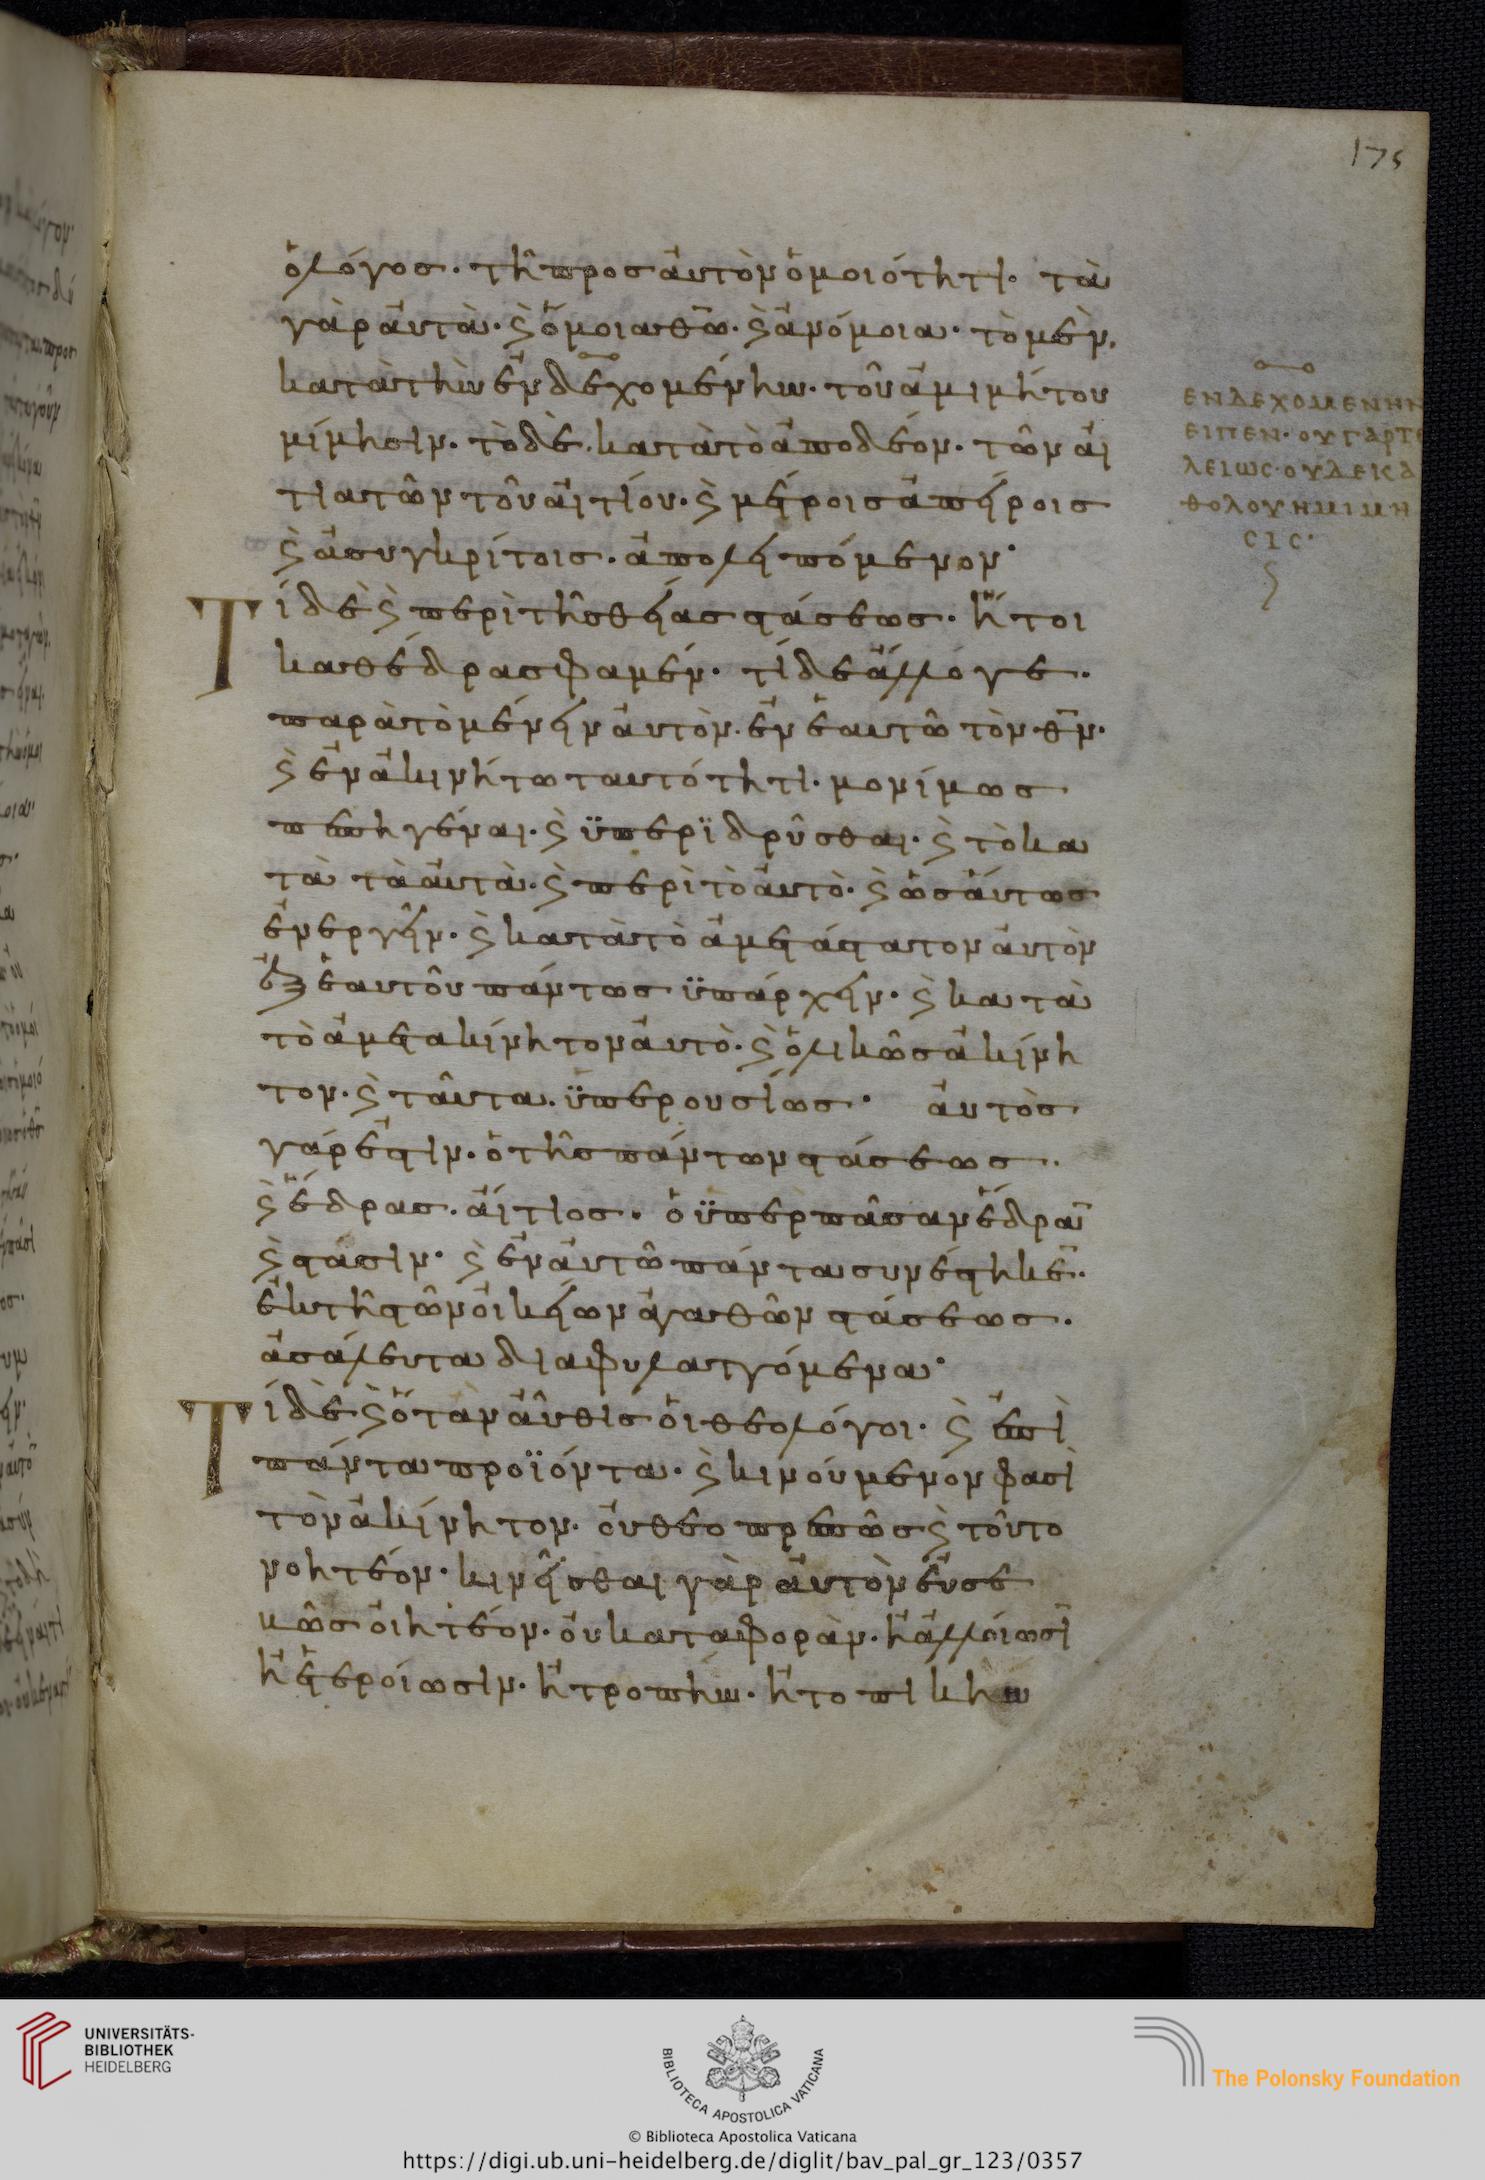 175
ὁ λόγος· τῆ προς αὐτὸν ὁμοιότητι· τὰ
γὰρ αὐτὰ· ϗ ὅμοια θω· ϗ ἀνόμοια· τὸ μὲν,
κατὰ τὴν ἐνδεχομένην· τοῦ ἀμιμήτου
μίμησιν· τὸ δὲ· κατὰ τὸ ἀποδέον· τῶν αἰ
τιατῶν τοῦ αἰτίου· ϗ μέτροις ἀπείροις
ϗ ἀσυγκρίτοις· ἀπολειπόμενον·
Τί δὲ ϗ περὶ τῆς θείας στάσεως· ἤτοι
καθέδρας φαμέν· τί δε ἄλλό γε·
παρὰ τὸ μένειν αὐτὸν· ἐν ἑαυτῶ τὸν θν·
ϗ ἐν ἀκινήτω ταυτότητι· μονίμως
πεπηγέναι· ϗ ϋπερϊδρῦσθαι· ϗ τὸ κα
τὰ τὰ αὐτὰ· ϗ περὶ τὸ αὐτὸ· ϗ ὡσάυτως
ἐνεργεῖν· ϗ κατὰ τὸ ἀμετάστατον αὐτὸν
ἐξ ἑαυτοῦ πάντως ϋπάρχειν· ϗ κατὰ
τὸ ἀμετακίνητον αὐτὸ· ϗ ὁλικῶς ἀκίνη
τον· ϗ ταῦτα· ϋπερουσίως· αὐτὸς
γάρ ἐστιν· ὁ τῆς πάντων στάσεως·
ϗ ἕδρας· ἄιτιος· ὁ ϋπὲρ πᾶσαν ἕδρα
ϗ στάσιν· ϗ ἐν αὐτῶ πάντα συνέστηκε·
ἐκ τῆς τῶν οἰκείων ἀγαθῶν στάσεως·
ἀσάλευτα διαφυλαττόμενα·
Τί δὲ ϗ ὅταν αὖθις ὁι θεολόγοι· ϗ ἐπὶ
πάντα προϊόντα· ϗ κινούμενον φασὶ
τὸν ἀκίνητον· οὐ θεοπρεπῶς ϗ τοῦτο
νοητέον· κινεῖσθαι γὰρ αὐτὸν ἐυσε
κῶς οἰητέον· οὐ κατα φορὰν· ἢ ἀλλοίωσι
ἢ ἑτεροίωσιν· ἢ τροπὴν· ἢ τοπικὴν
ΕΝΔΕΧΟΜΕΝΗΝ
ΕΙΠΕΝ· ΟΥ ΓΑΡ ΤΕ
ΛΕΙΩϹ· ΟΥΔΕΙϹ Δ
ΘΟΛΟΥ Η ΜΙΜΗ
ϹΙϹ·
UNIVERSITÄTS-
BIBLIOTHEK
HEIDELBERG
BIBLIOTECA APOSTOLICA VATICANA
© Biblioteca Apostolica Vaticana
The Polonsky Foundation
https://digi.ub.uni-heidelberg.de/diglit/bav_pal_gr_123/0357